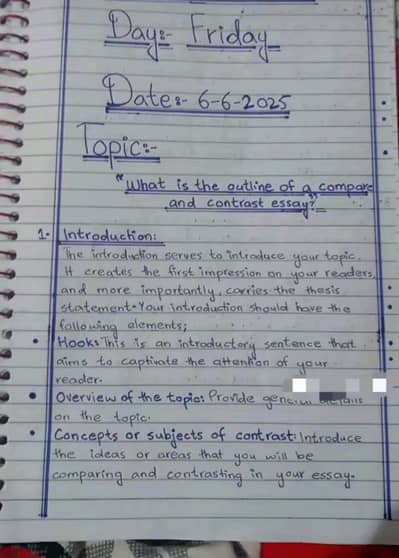 Day:- Friday
Date:- 6-6-2025
Topic:-
"What is the outline of a compare
and contrast essay?"
1. Introduction:
The introduction serves to introduce your topic.
It creates the first impression on your readers,
and more importantly, carries the thesis
statement. Your introduction should have the
following elements;
• Hook: This is an introductory sentence that
aims to captivate the attention of your
reader.
• Overview of the topic: Provide
on the topic.
• Concepts or subjects of contrast: Introduce
the ideas or areas that you will be
comparing and contrasting in your essay.